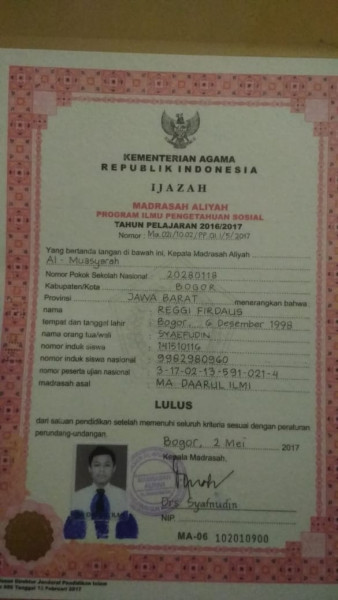 KEMENTERIAN AGAMA
REPUBLIK INDONESIA
IJAZAH
MADRASAH ALIYAH
PROGRAM ILMU PENGETAHUAN SOSIAL
TAHUN PELAJARAN 2016/2017
Nomor : Ma.021/10.02/PP.01.1/5/2017
Yang bertanda tangan di bawah ini, Kepala Madrasah Aliyah
Al - Muasyarah
Nomor Pokok Sekolah Nasional 20280118
Kabupaten/Kota BOGOR
Provinsi JAWA BARAT menerangkan bahwa:
nama REGGI FIRDAUS
tempat dan tanggal lahir Bogor, 6 Desember 1998
nama orang tua/wali SYAEFUDIN
nomor induk siswa 141510116
nomor induk siswa nasional 9982980960
nomor peserta ujian nasional 3-17-02-13-591-021-4
madrasah asal MA DAARUL ILMI
LULUS
dari satuan pendidikan setelah memenuhi seluruh kriteria sesuai dengan peraturan
perundang-undangan.
Bogor, 2 Mei 2017
Kepala Madrasah,
Drs. Syafrudin
NIP.
MA-06 102010900
Direktur Jenderal Pendidikan Islam
Tanggal Februari 2017